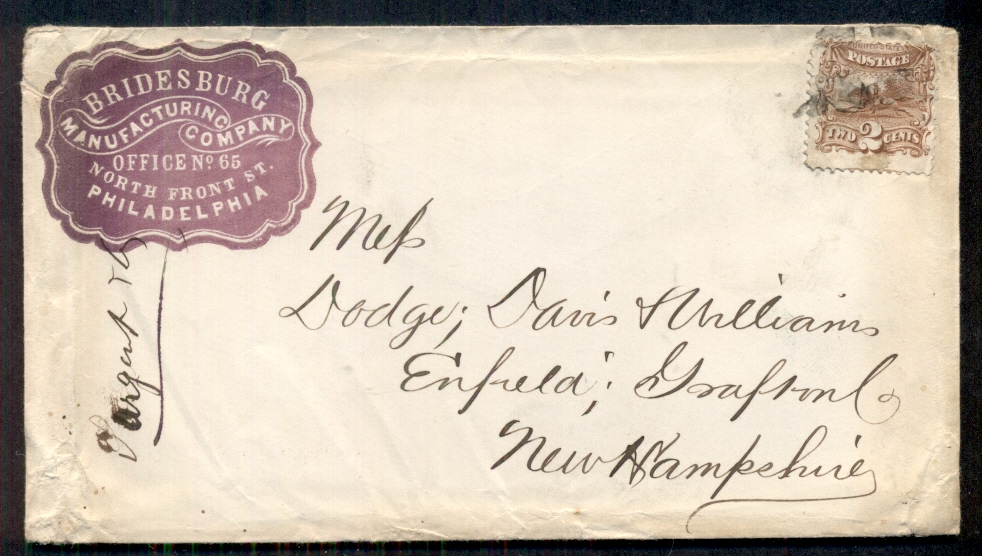 BRIDESBURG
MANUFACTURING
COMPANY
OFFICE No. 65
NORTH FRONT ST.
PHILADELPHIA
UNITED STATES
POSTAGE
TWO 2 CENTS
Mess
Dodge; Davis & Williams
Enfield; Grafton Co
New Hampshire